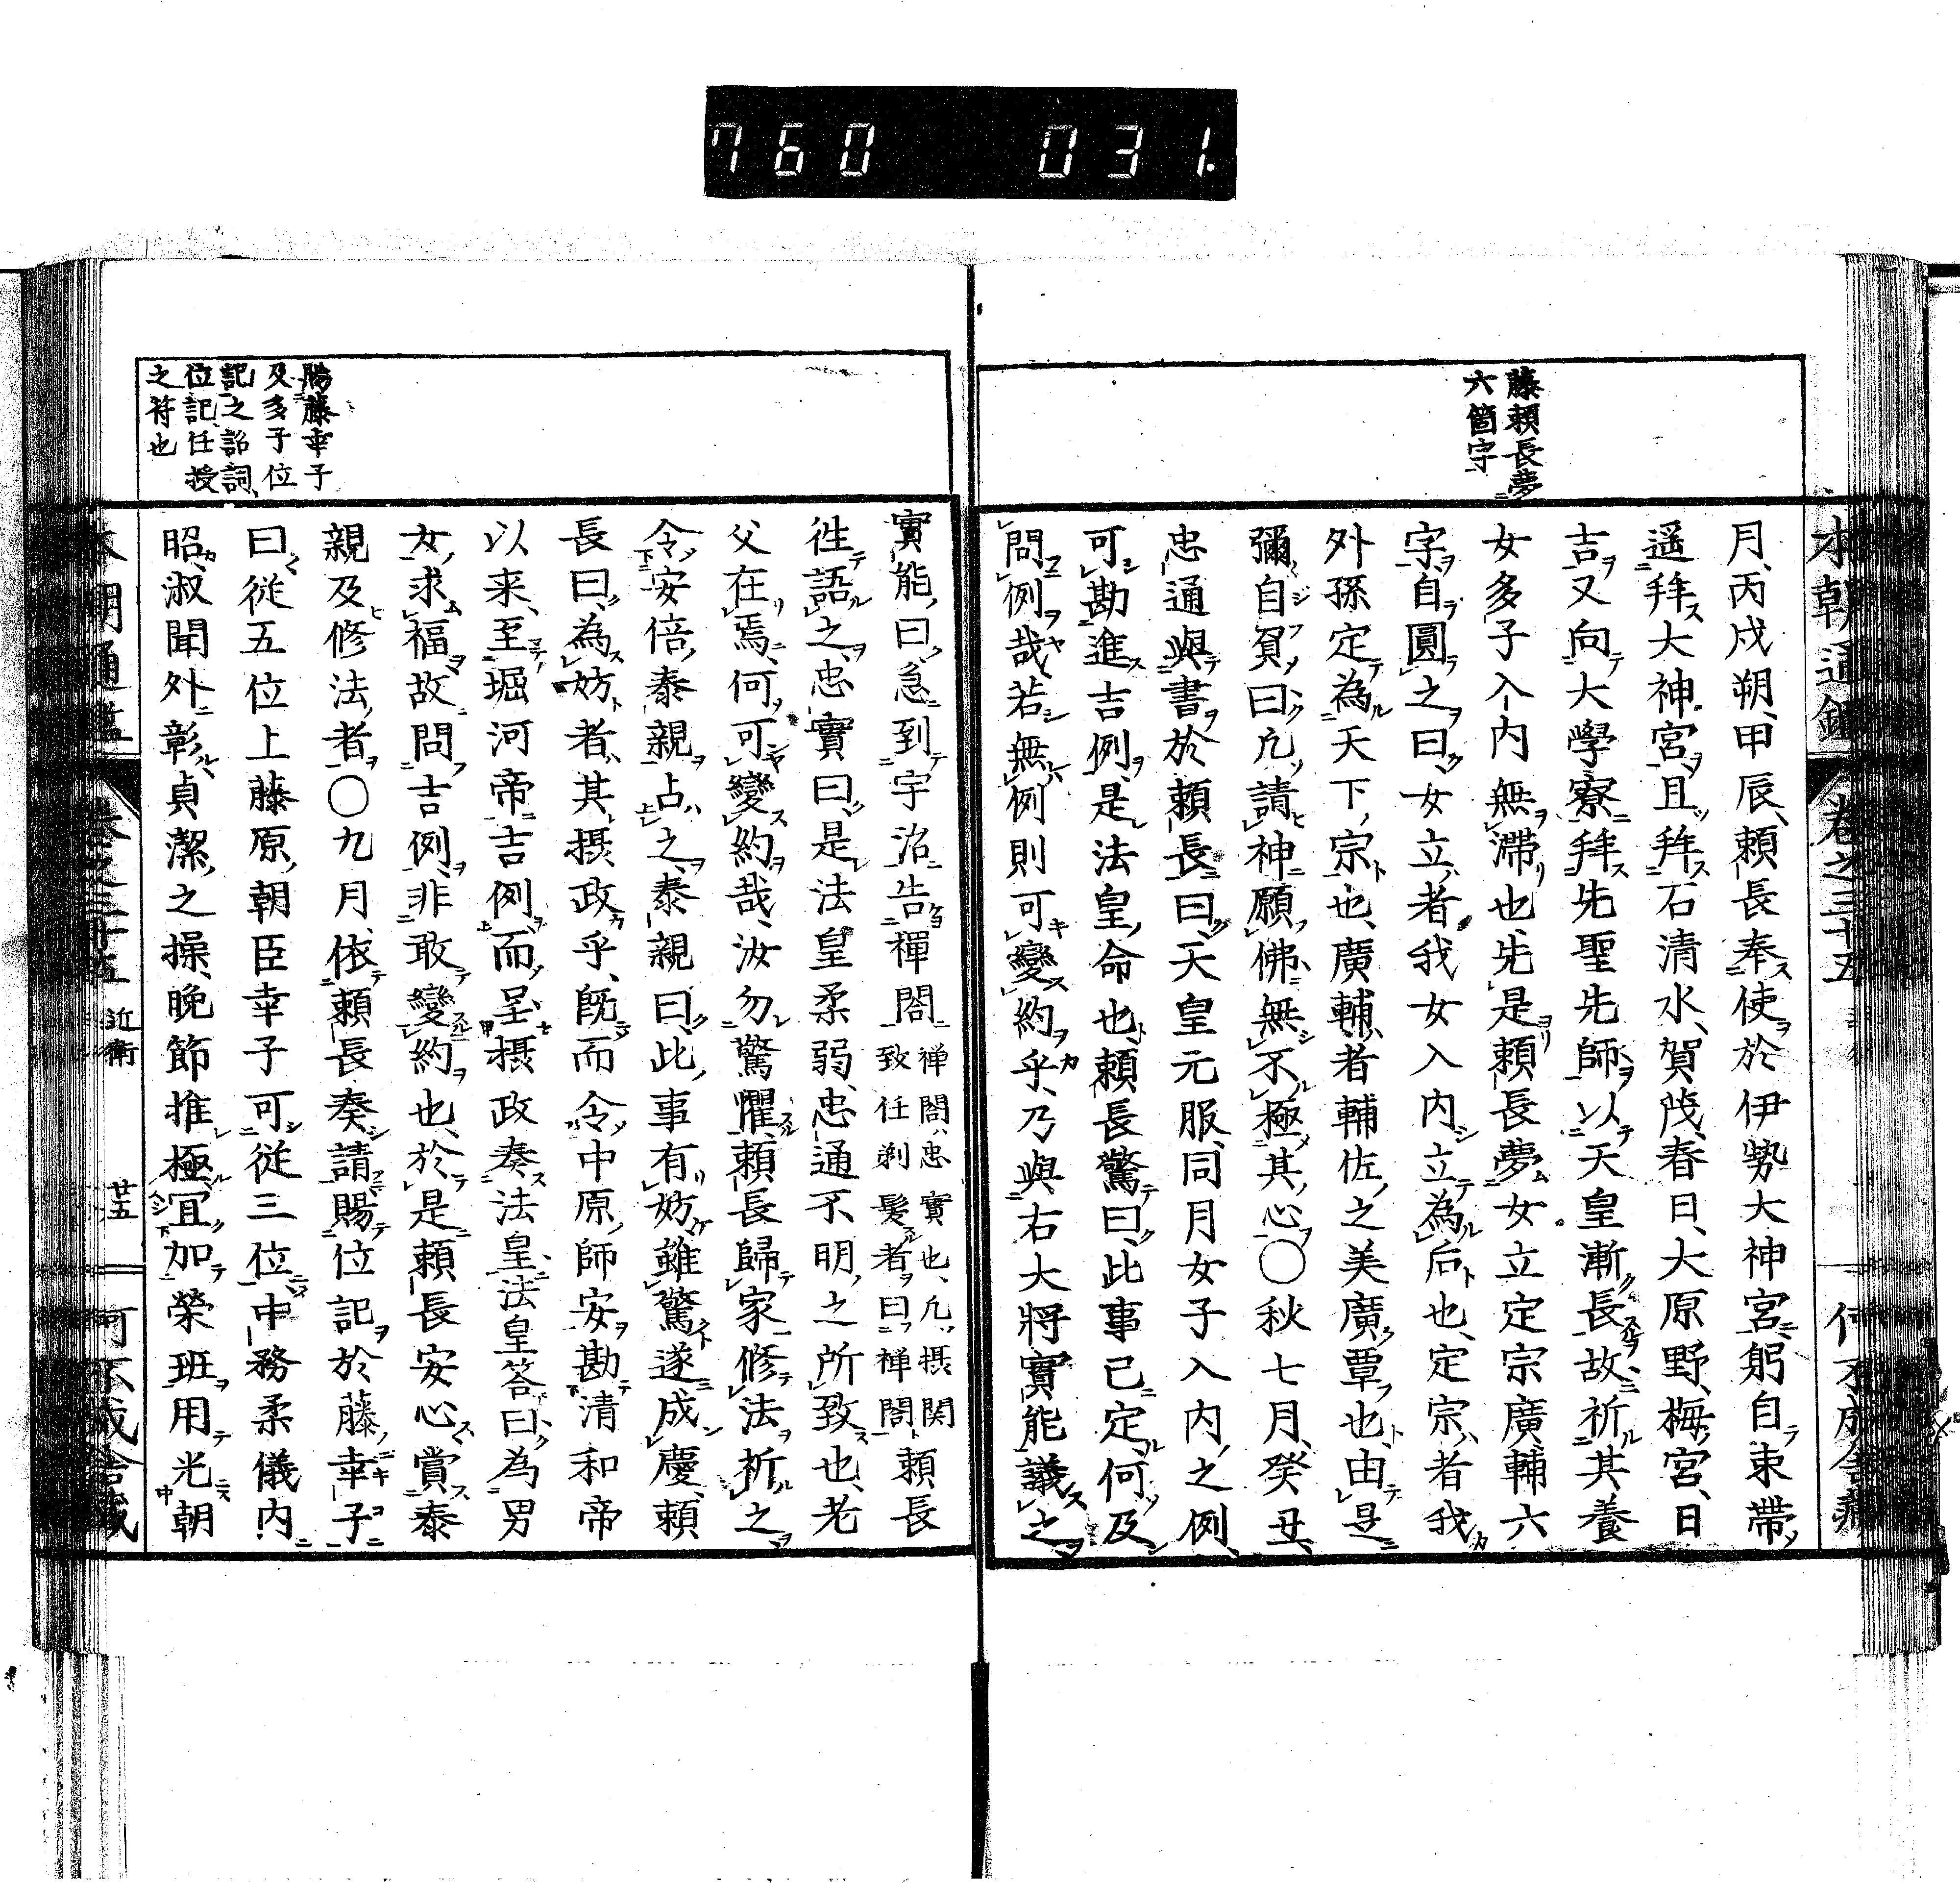 760 031.
藤頼長夢
六箇字
本朝通鑑 卷之三十五
月丙戌朔甲辰頼長奉使於伊勢大神宮躬自束帶
遥拜大神宮且拜石清水賀茂春日大原野梅宮日
吉又向大學寮拜先聖先師以天皇漸長故祈其養
女多子入内無滯也先是頼長夢女立定宗廣輔六
字自圓之曰女立者我女入内立為后也定宗者我
外孫定為天下宗也廣輔者輔佐之美廣覃也由是
彌自負曰凢請神願佛無不極其心〇秋七月癸丑
忠通與書於頼長曰天皇元服同月女子入内之例
可勘進吉例是法皇命也頼長驚曰此事已定何及
問例哉若無例則可變約乎乃與右大將實能議之
實能曰急到宇治告禪閤禅閤忠實也凢摂関致任剃髪者曰禅閤頼長
徃語之忠實曰是法皇柔弱忠通不明之所致也老
父在焉何可變約哉汝勿驚懼頼長歸家修法祈之
令安倍泰親占之泰親曰此事有妨雖驚遂成慶頼
長曰為妨者其摂政乎既而令中原師安勘清和帝
以来至堀河帝吉例而呈摂政奏法皇法皇答曰為男
女求福故問吉例非敢變約也於是頼長安心賞泰
親及修法者〇九月依頼長奏請賜位記於藤幸子
曰従五位上藤原朝臣幸子可従三位中務柔儀内
昭淑聞外彰貞潔之操晩節推極冝加榮班用光朝
賜藤幸子
及多子位
記之詔詞
位記任授
之符也
本朝通鑑 卷之三十五 近衛 廿五